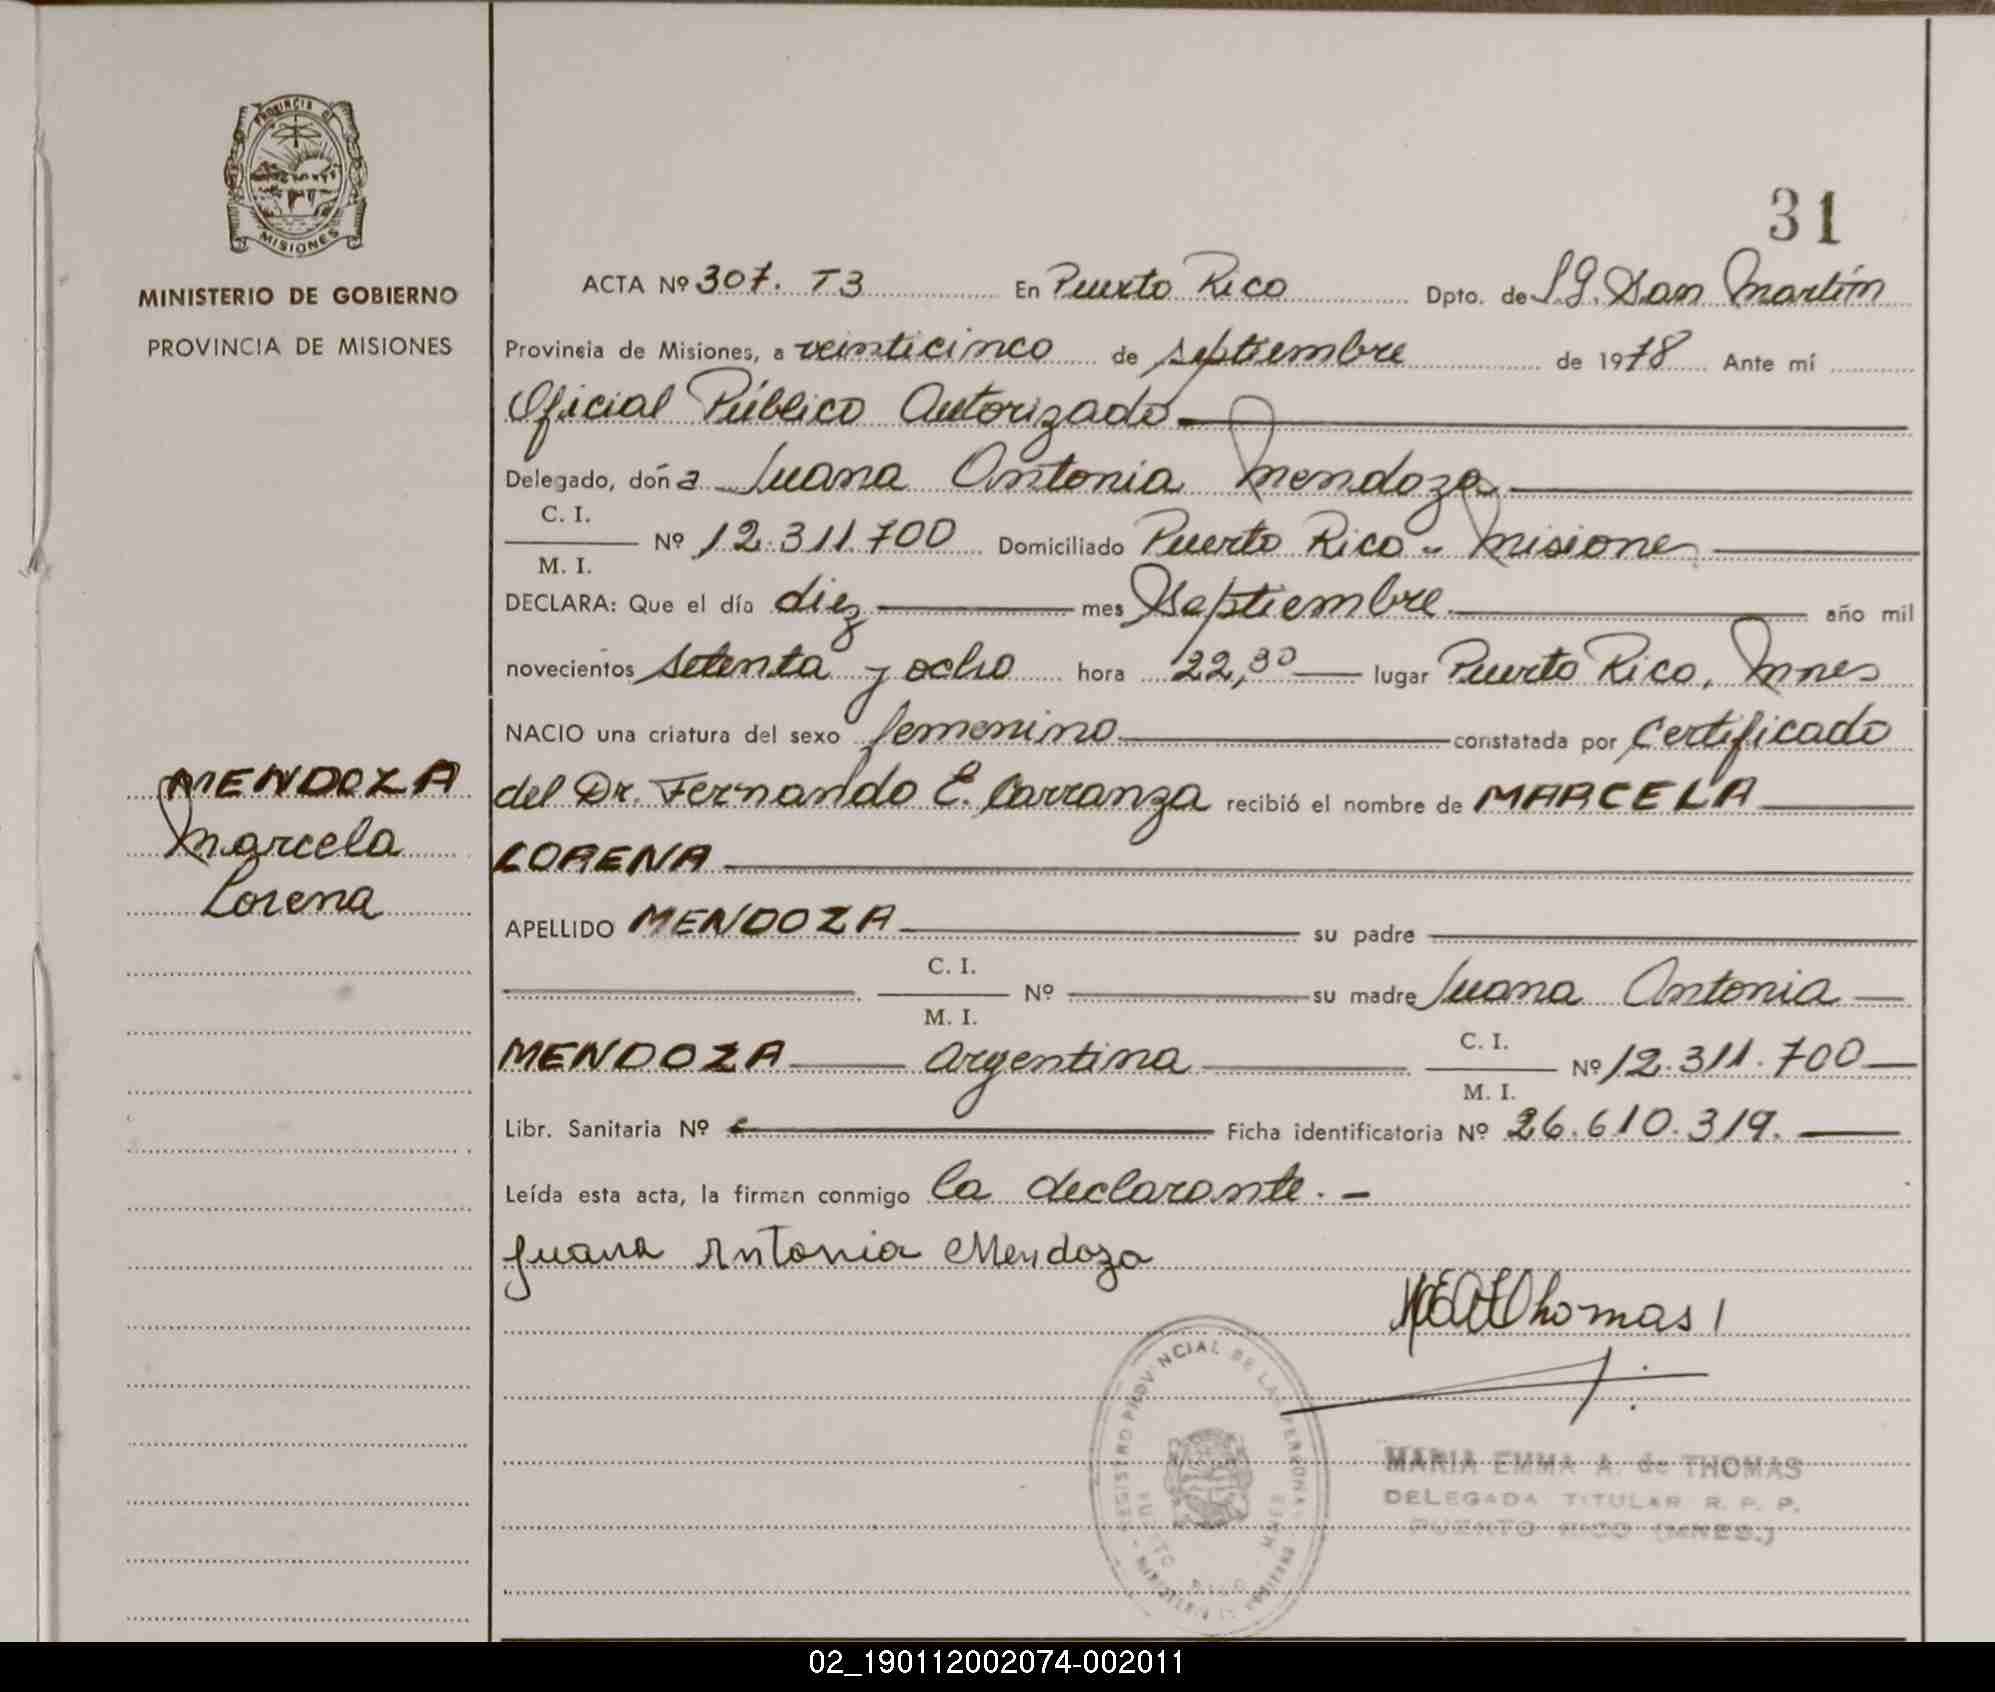 PROVINCIA DE
MISIONES
MINISTERIO DE GOBIERNO
PROVINCIA DE MISIONES
MENDOZA
Marcela
Lorena
31
ACTA Nº 307. T3 En Puerto Rico Dpto. de L.G. San Martín
Provincia de Misiones, a veinticinco de septiembre de 1978 Ante mí
Oficial Público Autorizado
Delegado, doña Juana Antonia Mendoza
C. I.
M. I.
Nº 12.311.700 Domiciliado Puerto Rico - Misiones
DECLARA: Que el día diez mes Septiembre año mil
novecientos setenta y ocho hora 22,30 lugar Puerto Rico, Mnes
NACIO una criatura del sexo femenino constatada por Certificado
del Dr. Fernando E. Carranza recibió el nombre de MARCELA
LORENA
APELLIDO MENDOZA su padre
C. I.
M. I.
Nº su madre Juana Antonia
MENDOZA argentina C. I.
M. I.
Nº 12.311.700
Libr. Sanitaria Nº Ficha identificatoria Nº 26.610.319.
Leída esta acta, la firman conmigo la declarante. -
Juana Antonia Mendoza
Thomas
REGISTRO PROVINCIAL DE LAS PERSONAS
MARIA EMMA A. de THOMAS
DELEGADA TITULAR R. P. P.
PUERTO RICO (MNES.)
02_190112002074-002011